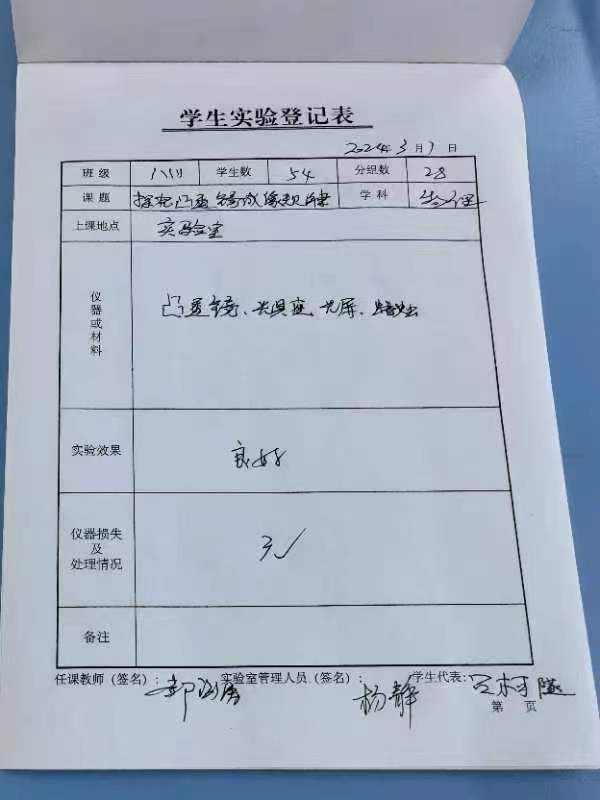 学生实验登记表
2024年3月7日
班级 学生数 54 分组数 28
课题 探究凸透镜成像规律 学科 物理
上课地点 实验室
仪器或材料 凸透镜、光具座、光屏、蜡烛
实验效果 良好
仪器损失及处理情况 无
备注
任课教师（签名）： 实验室管理人员（签名）：杨静 学生代表：
第 页